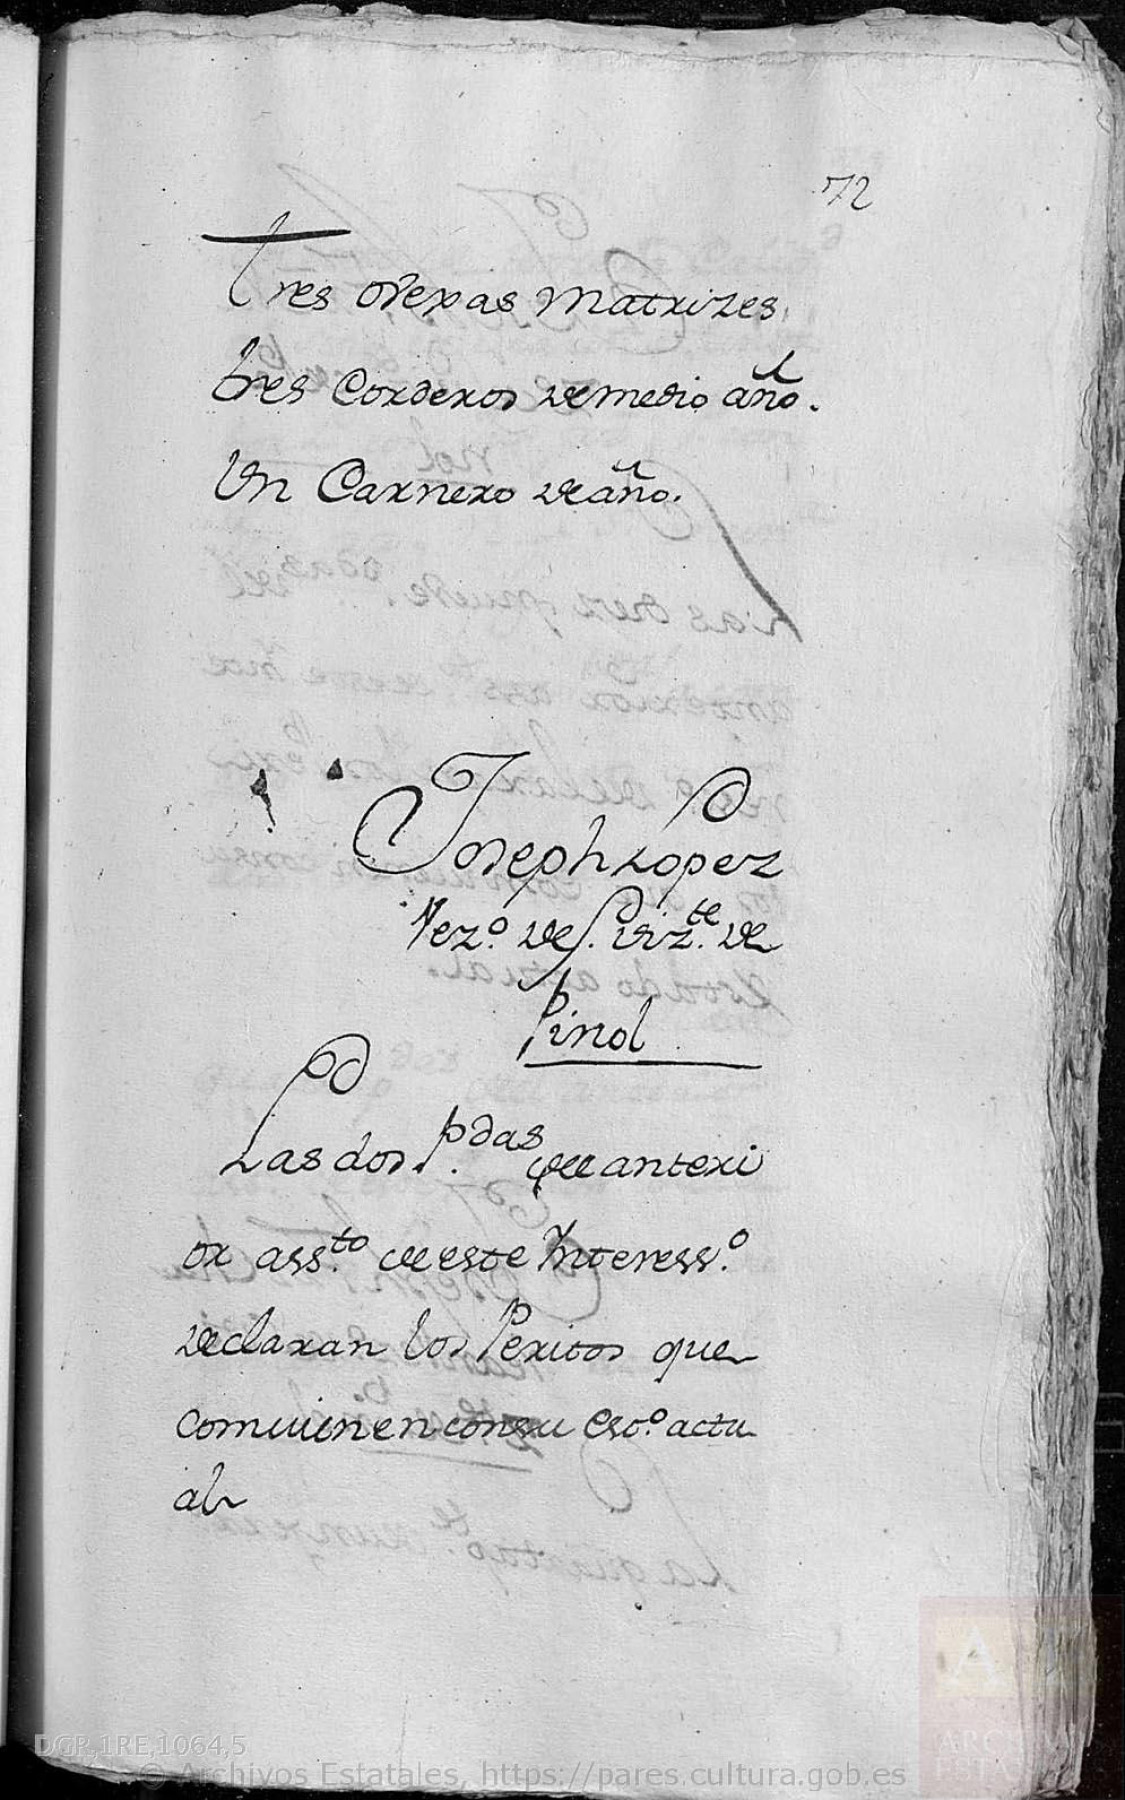 72
Tres ovexas Matrizes.
tres Corderos de medio año.
Un Carnero de año.
Joseph Lopez
Vez.º de S. Viz.te de
Pinol
Las dos P.das del anteri
or ass.to de este Interess.º
declaran los Peritos que
comvienen con su Est.º actu
al
DGR,1RE,1064,5
© Archivos Estatales, https://pares.cultura.gob.es